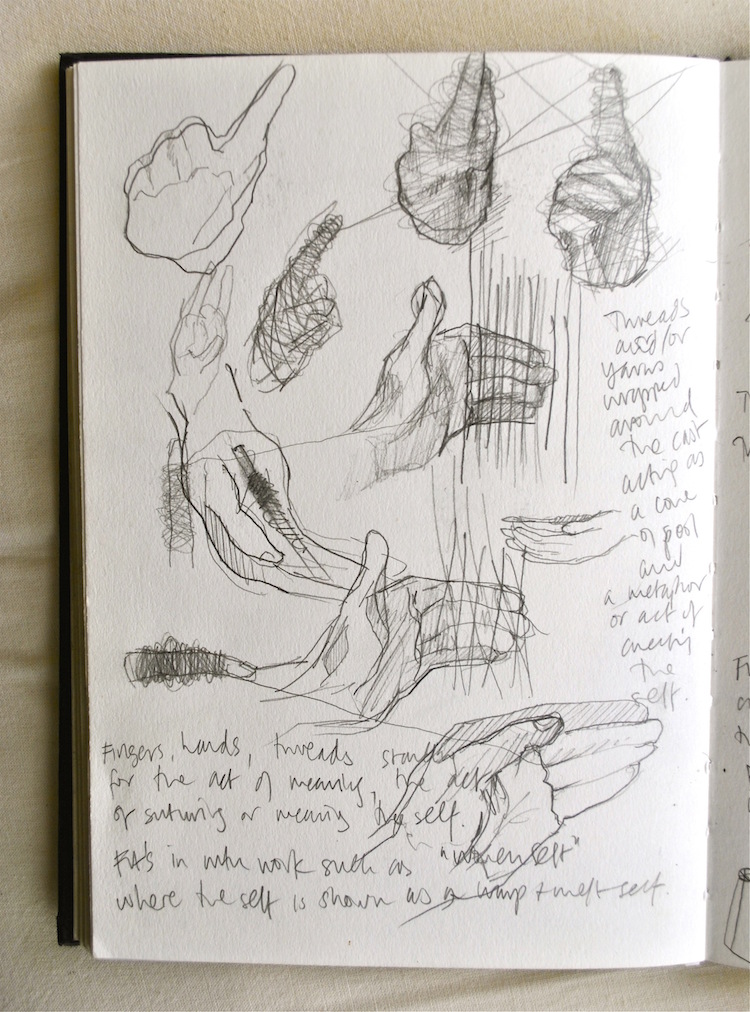 Threads
and/or
yarns
wrapped
around
the cast
acting as
a
and
a metaphor
or act of
the
self.
Fingers, hands, threads
for the act of meaning, the act
of suturing or the self.
in work such as "woven self"
where the self is shown as a warp + weft self.